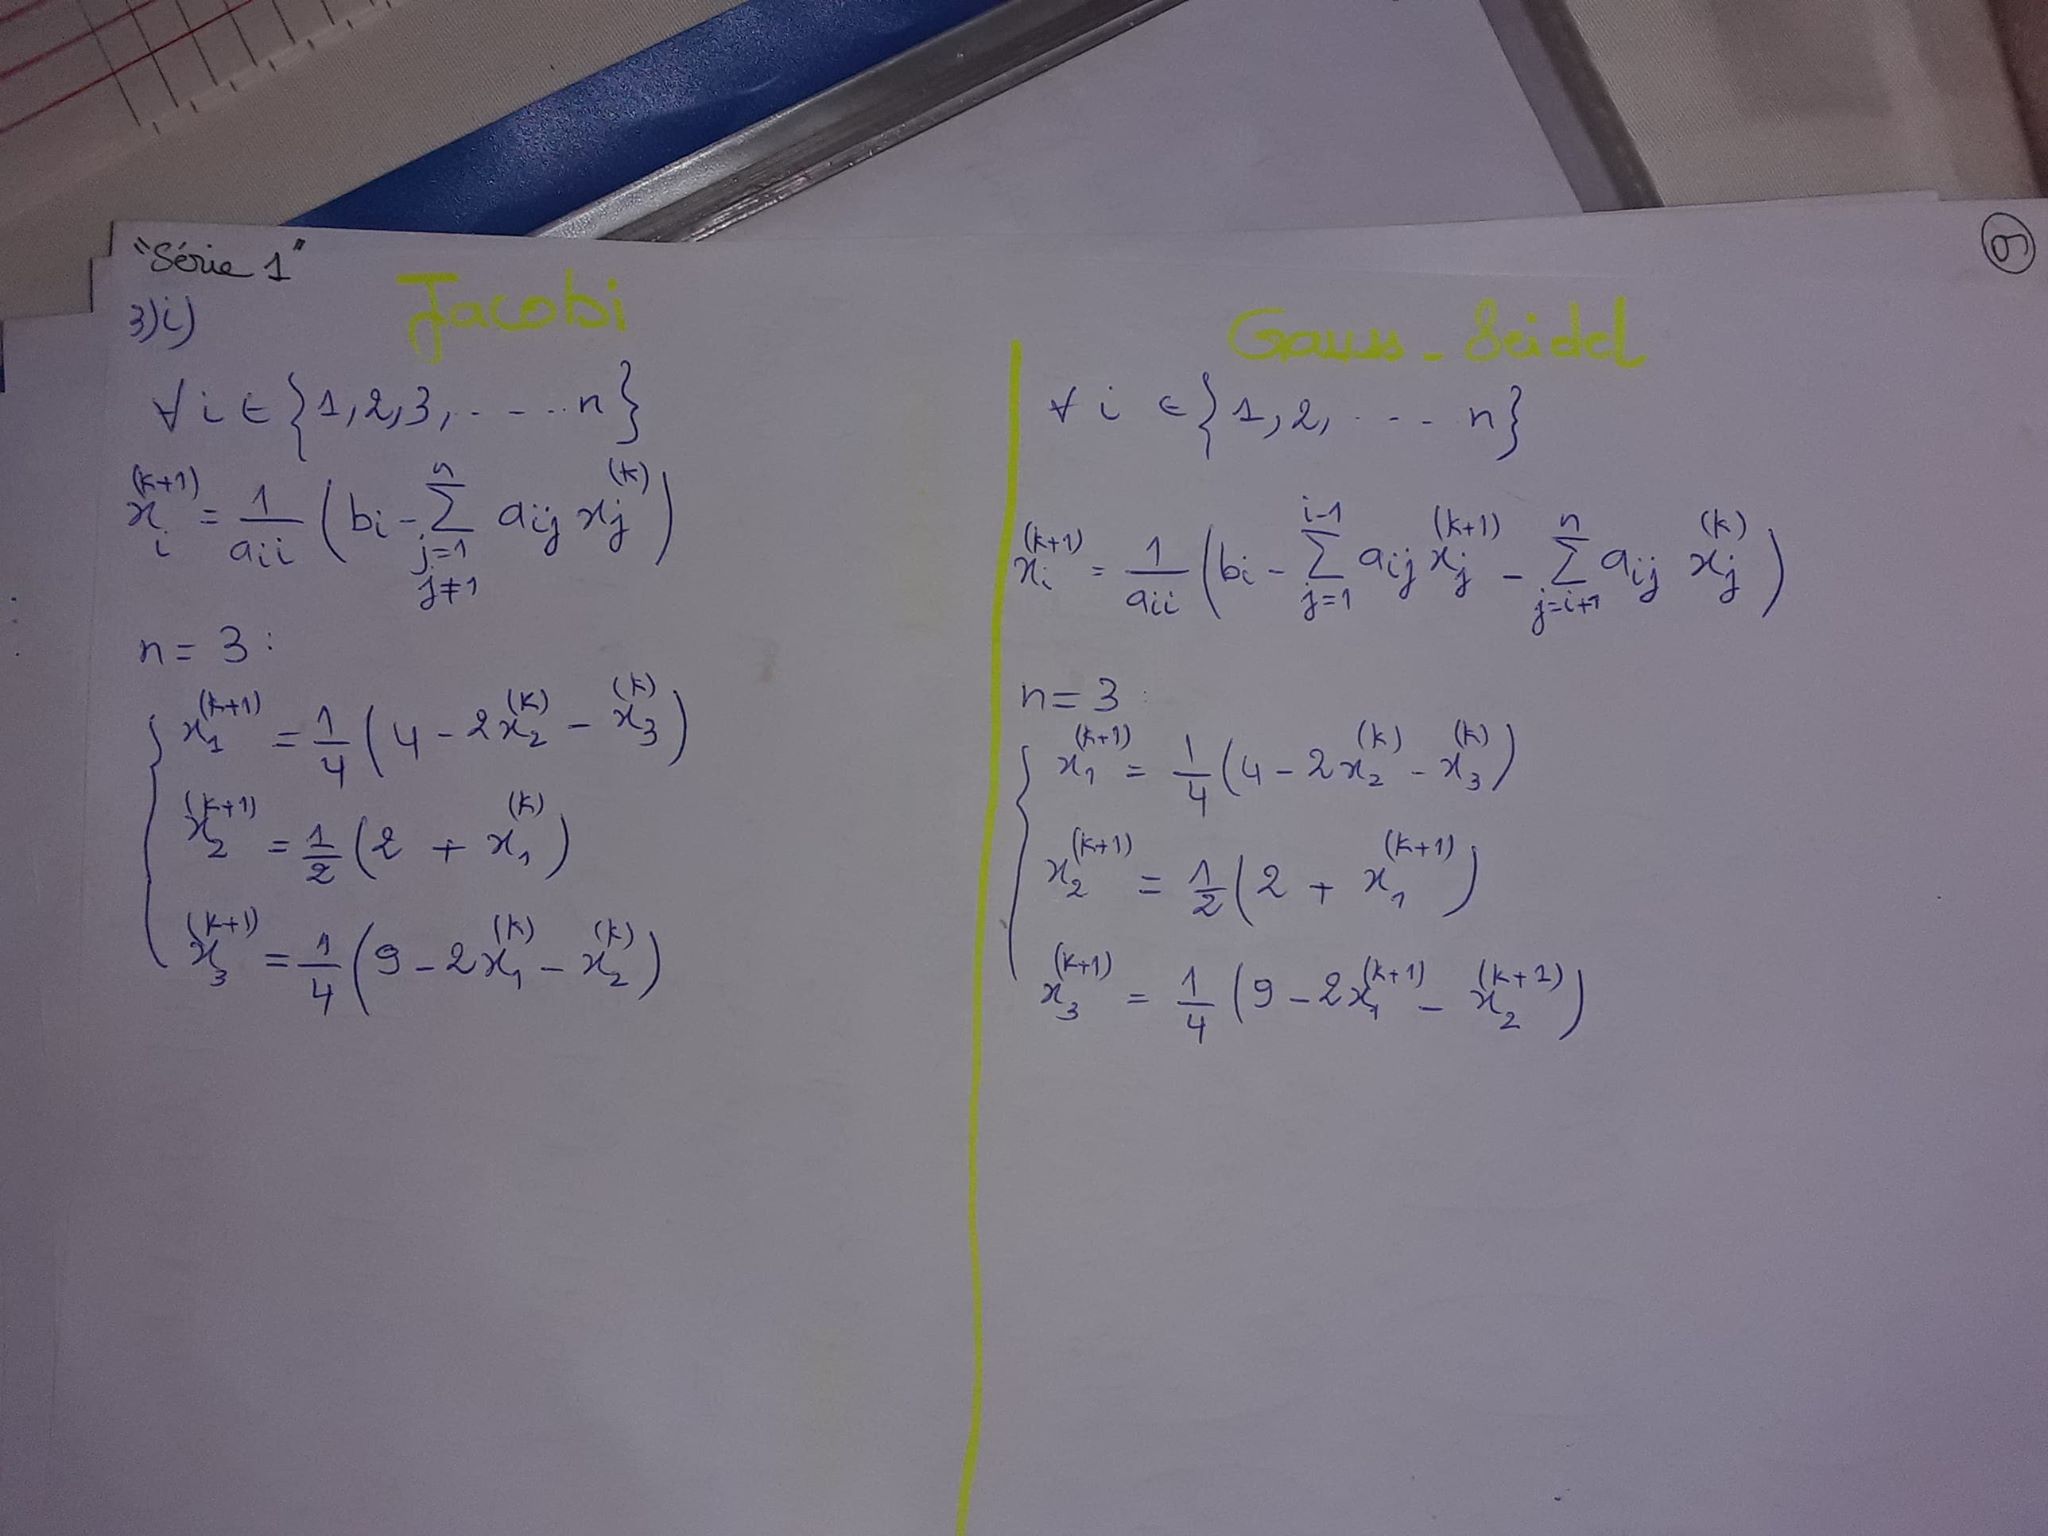 "Série 1"
3)i)
Jacobi
∀ i ∈ {1,2,3,.....n}
x_i^(k+1) = 1/a_ii (b_i - Σ_{j=1, j≠1}^{n} a_ij x_j^(k))
n = 3 :
{ x_1^(k+1) = 1/4 (4 - 2x_2^(k) - x_3^(k))
x_2^(k+1) = 1/2 (2 + x_1^(k))
x_3^(k+1) = 1/4 (9 - 2x_1^(k) - x_2^(k))
Gauss-Seidel
∀ i ∈ {1,2,.... n}
x_i^(k+1) = 1/a_ii (b_i - Σ_{j=1}^{i-1} a_ij x_j^(k+1) - Σ_{j=i+1}^{n} a_ij x_j^(k))
n = 3 :
{ x_1^(k+1) = 1/4 (4 - 2x_2^(k) - x_3^(k))
x_2^(k+1) = 1/2 (2 + x_1^(k+1))
x_3^(k+1) = 1/4 (9 - 2x_1^(k+1) - x_2^(k+1))